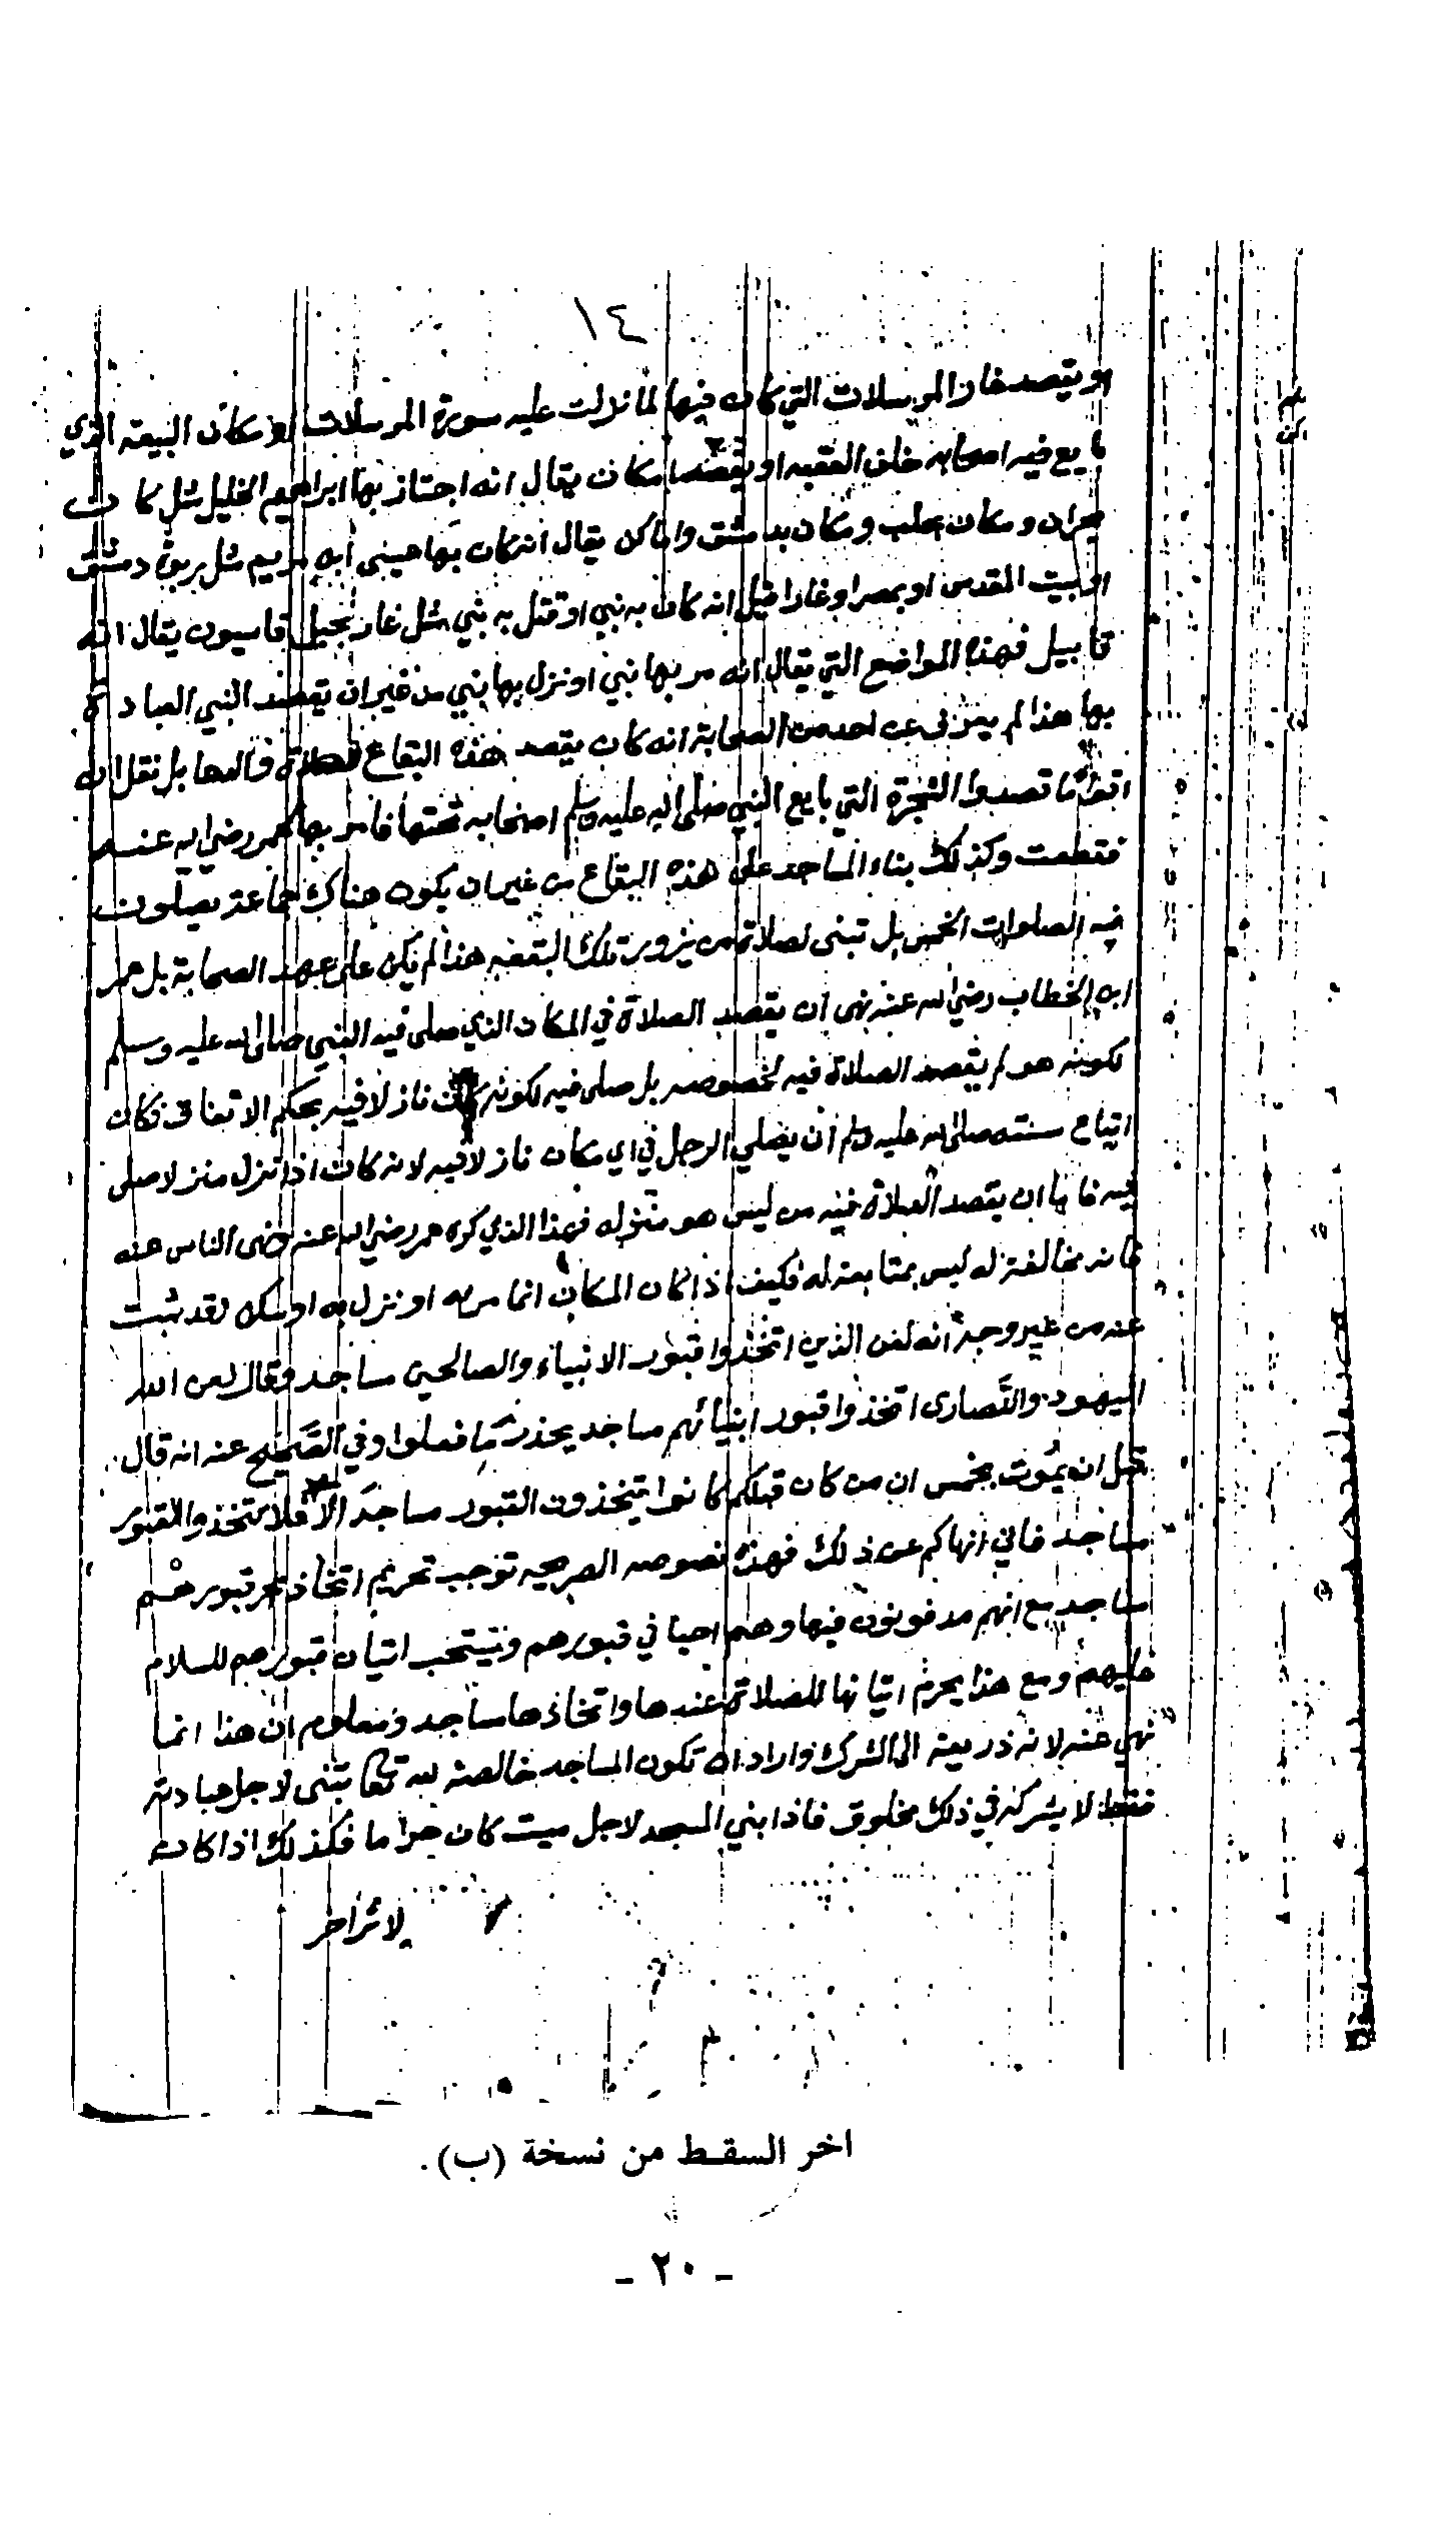 ١٤
او يقصد غار المرسلات التي كان فيها لما نزلت عليه سورة المرسلات او مكان البيعه الذي
بايع فيه اصحابه خلف العقبه او يقصد مكان يقال انه اجتاز بها ابراهيم الخليل مثل كان
بحران ومكان بحلب ومكان بدمشق واماكن يقال انه كان بها عيسى ابن مريم مثل ربوة دمشق
او بيت المقدس او بمصر او غارا قيل انه كان به نبي او قتل به نبي مثل غار بجبل قاسيون يقال انه
قابيل فهذه المواضع التي يقال انه مر بها نبي او نزل بها نبي من غير ان يقصد النبي العبادة
بها هذا لم يعرف عن احد من الصحابة انه كان يقصد هذه البقاع للصلاة والدعا بل نقل ان
اقواما قصدوا الشجرة التي بايع النبي صلى الله عليه وسلم اصحابه تحتها فامر بها عمر رضي الله عنه
فقطعت وكذلك بناء المساجد على هذه البقاع من غير ان يكون هناك جماعة يصلون
فيه الصلوات الخمس بل تبنى لصلاة من يزور تلك البقعه هذا لم يكن على عهد الصحابة بل عمر
ابن الخطاب رضي الله عنه نهى ان يقصد الصلاة في المكان الذي صلى فيه النبي صلى الله عليه وسلم
لكونه هو لم يقصد الصلاة فيه لخصوصه بل صلى فيه لكونه كان نازلا فيه بحكم الاتفاق فكان
اتباع سنته صلى الله عليه وسلم أن يصلي الرجل في اي مكان نازلا فيه لانه كان اذا نزل منزلا صلى
فيه فاما ان يقصد الصلاة فيه من ليس هو منزله فهذا الذي كره عمر رضي الله عنه ونهى الناس عنه
فانه مخالفة له ليس بمتابعة له فكيف اذا كان المكان انما مر به او نزل به او سكن لقد ثبت
عنه من غير وجه انه لعن الذين اتخذوا قبور الانبياء والصالحين مساجد وقال لعن الله
اليهود والنصارى اتخذوا قبور انبيائهم مساجد يحذر ما فعلوا وفي الصحيح عنه انه قال
قبل ان يموت بخمس ان من كان قبلكم كانوا يتخذون القبور مساجد الا فلا تتخذوا القبور
مساجد فاني انهاكم عن ذلك فهذه نصوصه الصريحه توجب تحريم اتخاذ قبورهم
مساجد مع انهم مدفونون فيها وهم احيا في قبورهم ويستحب اتيان قبورهم للسلام
عليهم ومع هذا يحرم اتيانها للصلاة عندها واتخاذها مساجد ومعلوم ان هذا انما
نهي عنه لانه ذريعة الى الشرك واراد ان تكون المساجد خالصة لله تعا تبنى لاجل عبادته
فقط لا يشركه في ذلك مخلوق فاذا بني المسجد لاجل ميت كان حراما فكذلك اذا كان
لاثر اخر
اخر السقط من نسخة (ب).
- ٢٠ -